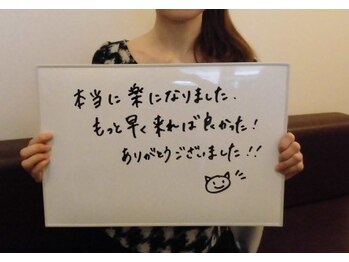 本当に楽になりました.
もっと早く来れば良かった!
ありがとうございました!!